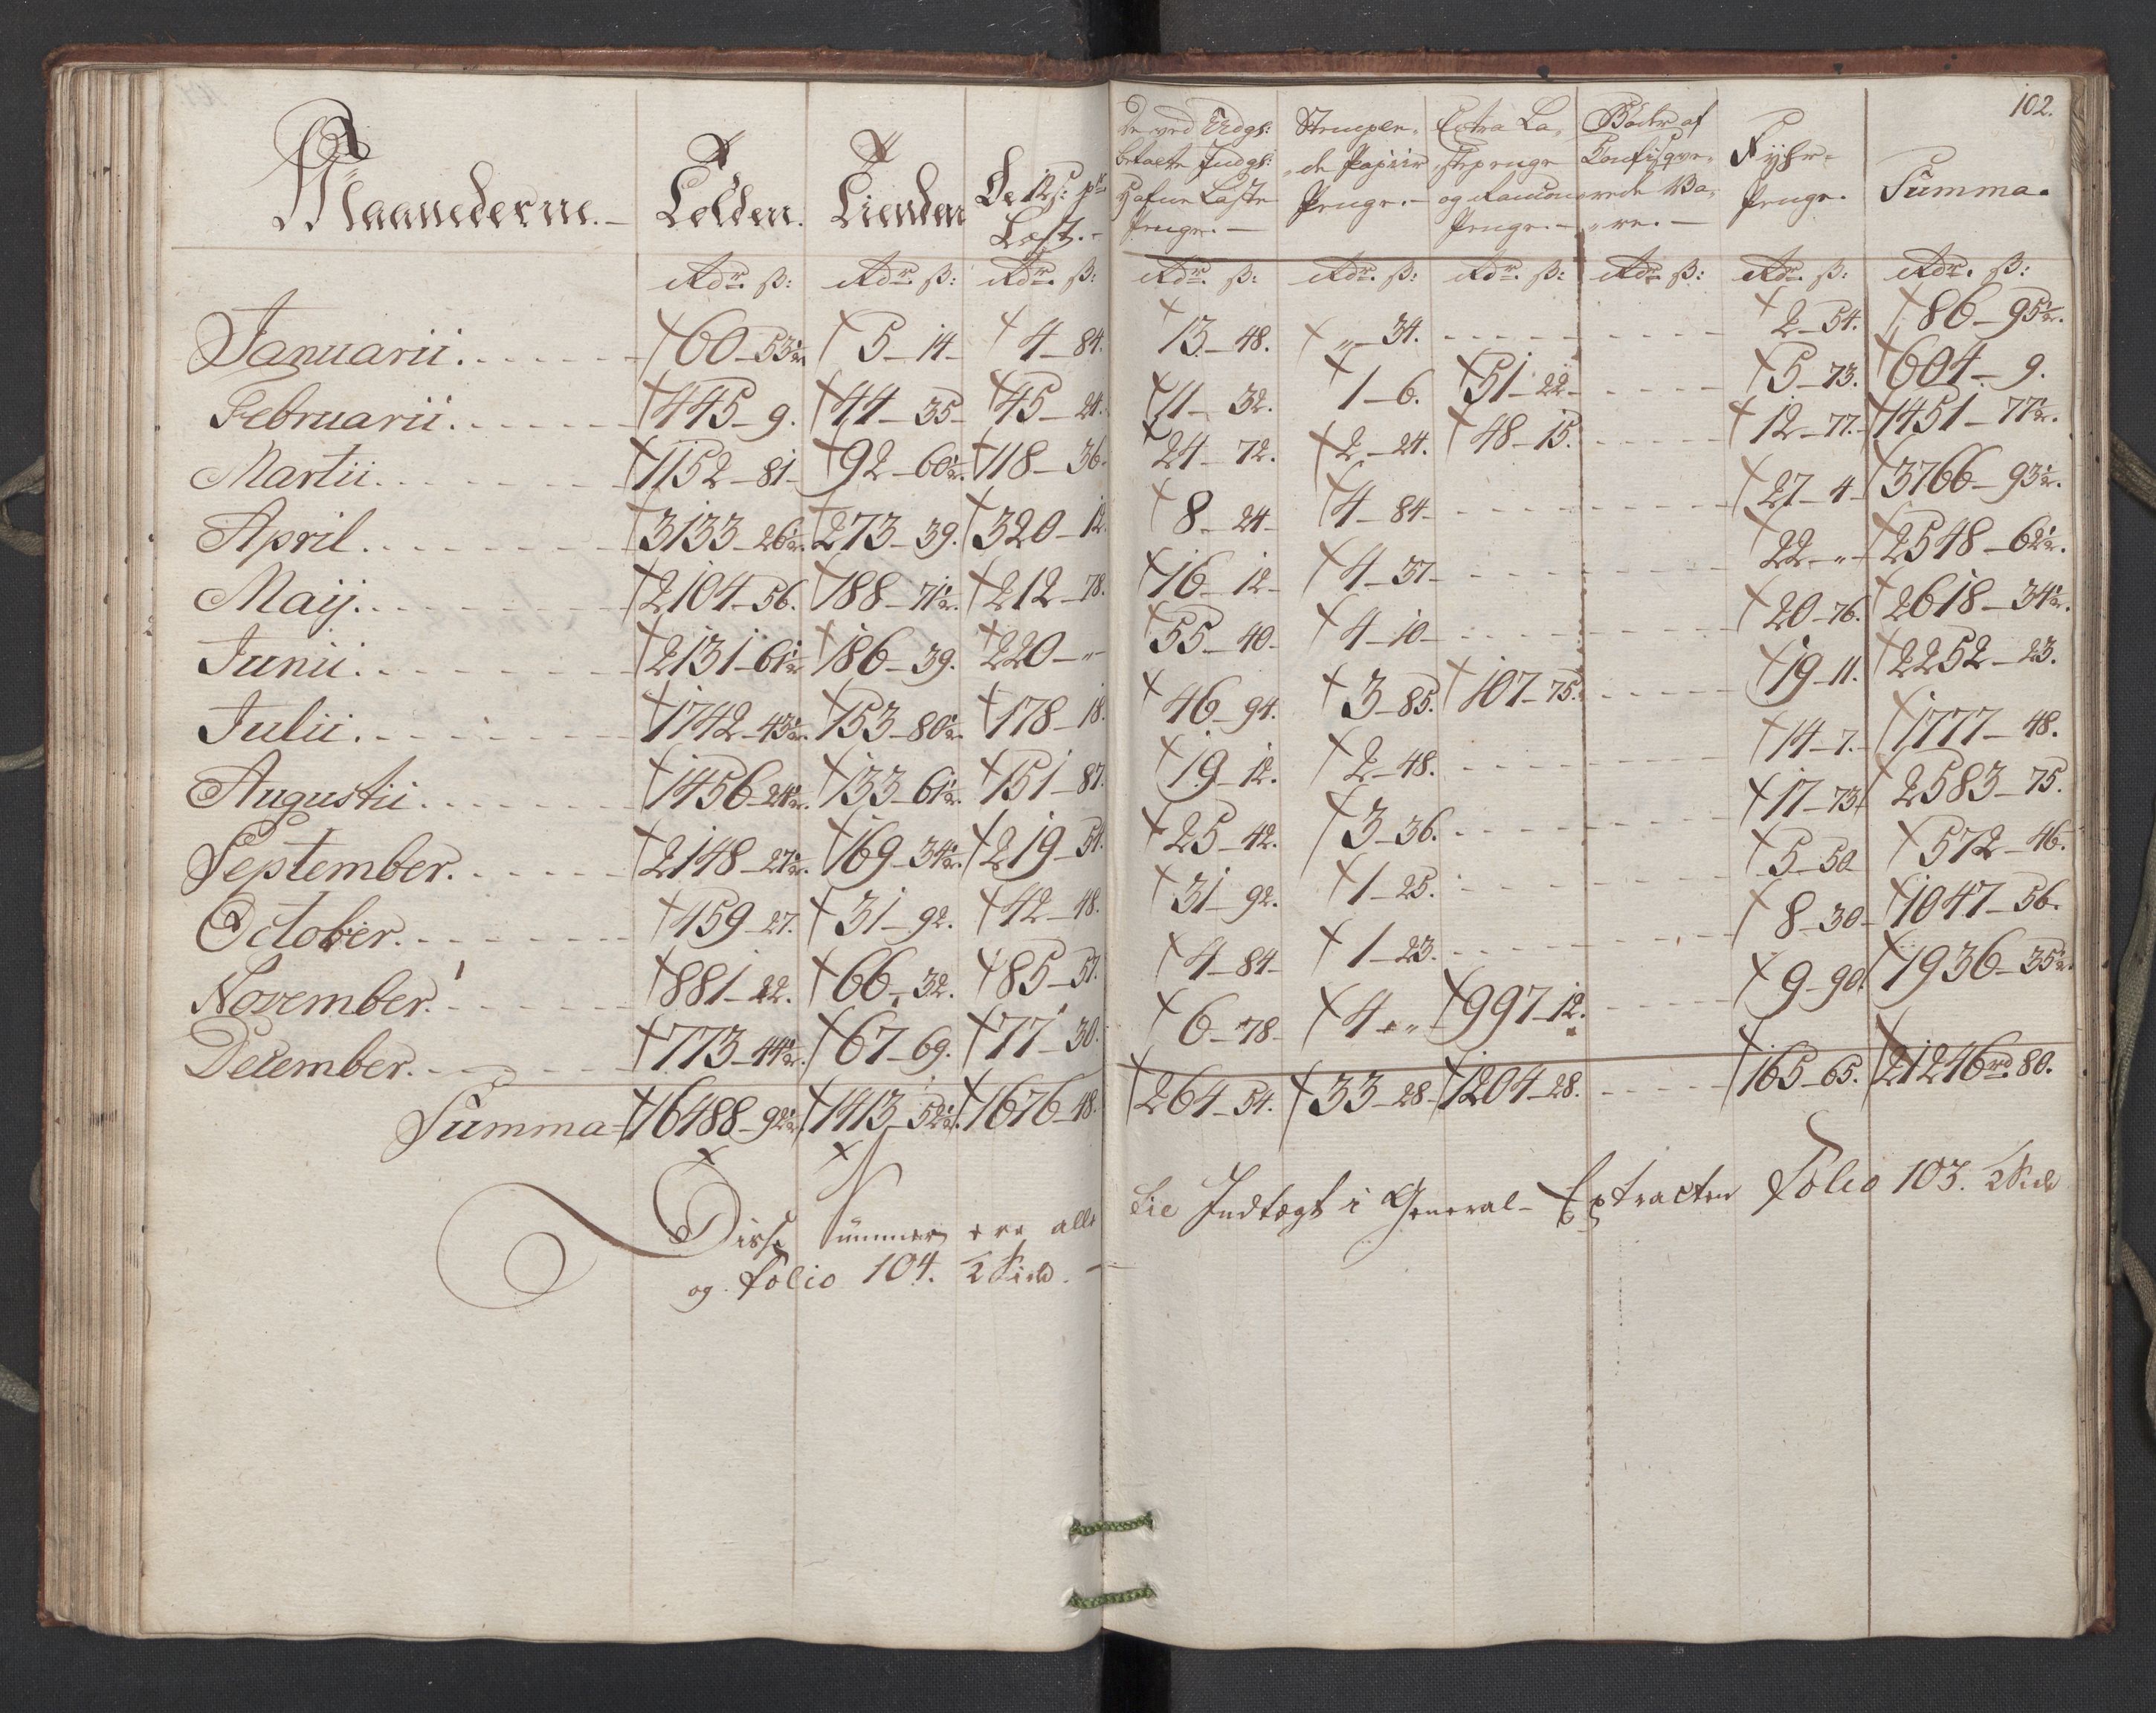 102.
Maanederne.
Tolden.
Tienden
De 12 s: pr
Læst.
De ved Udgl:
betalte Indgl:
Hafne Laste
Penge.
Stemplen-
de Papiir
Penge.
Extra La-
stepenge
og Rancions
Penge.
Bøder af
Confisqve-
rede Va-
re.
Fyhr-
Penge.
Summa.
Rdr. ß: Rdr. ß: Rdr. ß: Rdr. ß: Rdr. ß: Rdr. ß: Rdr. ß: Rdr. ß: Rdr. ß:
Januarii. 60-53½ 5-14 4-84. 13-48. „-34. 2-54. 86-95½.
Februarii. 445-9. 44-35 45-24. 11-32. 1-6. 51-22 5-73. 604-9.
Martii. 1152-81 92-60½. 118-36. 24-72. 2-24. 48-15. 12-77. 1451-77½.
April. 3133-26½. 273-39. 320-12. 8-24 4-84 27-4 3766-93½.
Maij. 2104-56. 188-71½. 212-78. 16-12 4-37 22-„ 2548-62½.
Junii. 2131-61½ 186-39. 220-„ 55-40 4-10 20-76. 2618-34½.
Julii. 1742-43½. 153-80½. 178-18. 46-94. 3-85. 107-75. 19-11. 2252-23.
Augustii. 1456-24½. 133-61½. 151-87. 19-12. 2-48. 14-7. 1777-48.
September. 2148-27½. 169-34½. 219-54. 25-42. 3-36. 17-73 2583-75.
October. 459-27. 31-92. 42-48. 31-92. 1-25. 5-50 572-46.
November. 881-22. 66-32. 85-57. 4-84 1-23. 8-30 1047-56.
December. 773-44½. 67-69. 77-30. 6-78 4-„ 997-12. 9-90. 1936-35½.
Summa 16488-92½ 1413-52½. 1676-48. 264-54. 33-28 1204-28. 165-65. 21246rd. 80.
Disse Summer ere alle til Indtægt i General-Extracten Folio 103. 2 Side
og Folio 104. 2 Side.